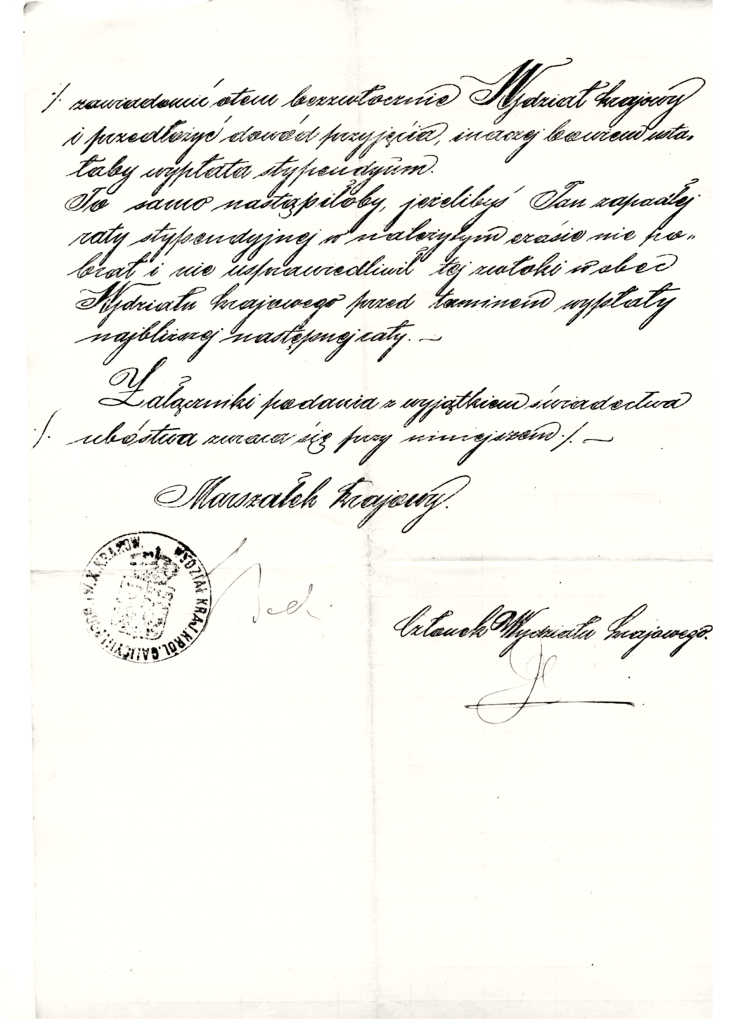 ./. zawiadomić otem bezzwłocznie Wydział krajowy
i przedłożyć dowód przyjęcia, inaczej bowiem usta-
łaby wypłata stypendyum.
To samo nastąpiłoby, jeżelibyś Pan zapadłej
raty stypendyjnej w należytym czasie nie po-
brał i nie usprawiedliwił tej zwłoki wobec
Wydziału krajowego przed terminem wypłaty
najbliższej następnej raty. —
Załączniki podania z wyjątkiem świadectwa
./. ubóstwa zwraca się przy niniejszem ./. —
Marszałek krajowy.
WYDZIAŁ KRAJ. KRÓL. GALICYI I W.X. KRAKOW.
Członek Wydziału krajowego.